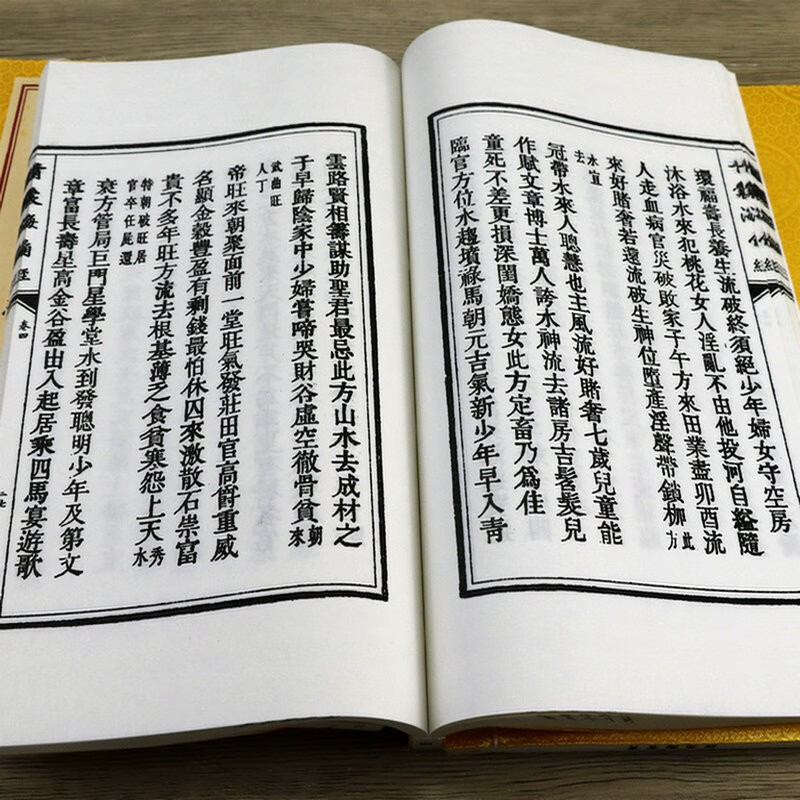 環福壽長養生流破終須絕少年婦女守空房
沐浴水來犯桃花女人淫亂不由他投河自縊隨
人走血病官災破敗家子午方來田業盡卯酉流
來好賭奢若還流破生神位墮產淫聲帶鎖枷此方
水宜去
冠帶水來人聰慧也主風流好賭奢七歲兒童能
作賦文章博士萬人誇水神流去諸房吉髫髮兒
童死不差更損深閨嬌態女此方定畜乃為佳
臨官方位水趨墳祿馬朝元吉氣新少年早入青
雲路賢相籌謀助聖君最忌此方山水去成材之
子早歸陰家中少婦嘗啼哭財谷虛空徹骨貧朝來
武曲旺人丁
帝旺來朝聚面前一堂旺氣發莊田官高爵重威
名顯金穀豐盈有剩錢最怕休囚來激散石崇富
貴不多年旺方流去根基薄乏食貧寒怨上天秀水
特朝破旺居官卒任屍還
衰方管局巨門星學堂水到發聰明少年及第文
章富長壽星高金谷盈出入起居乘四馬宴遊歌
卷四
二七